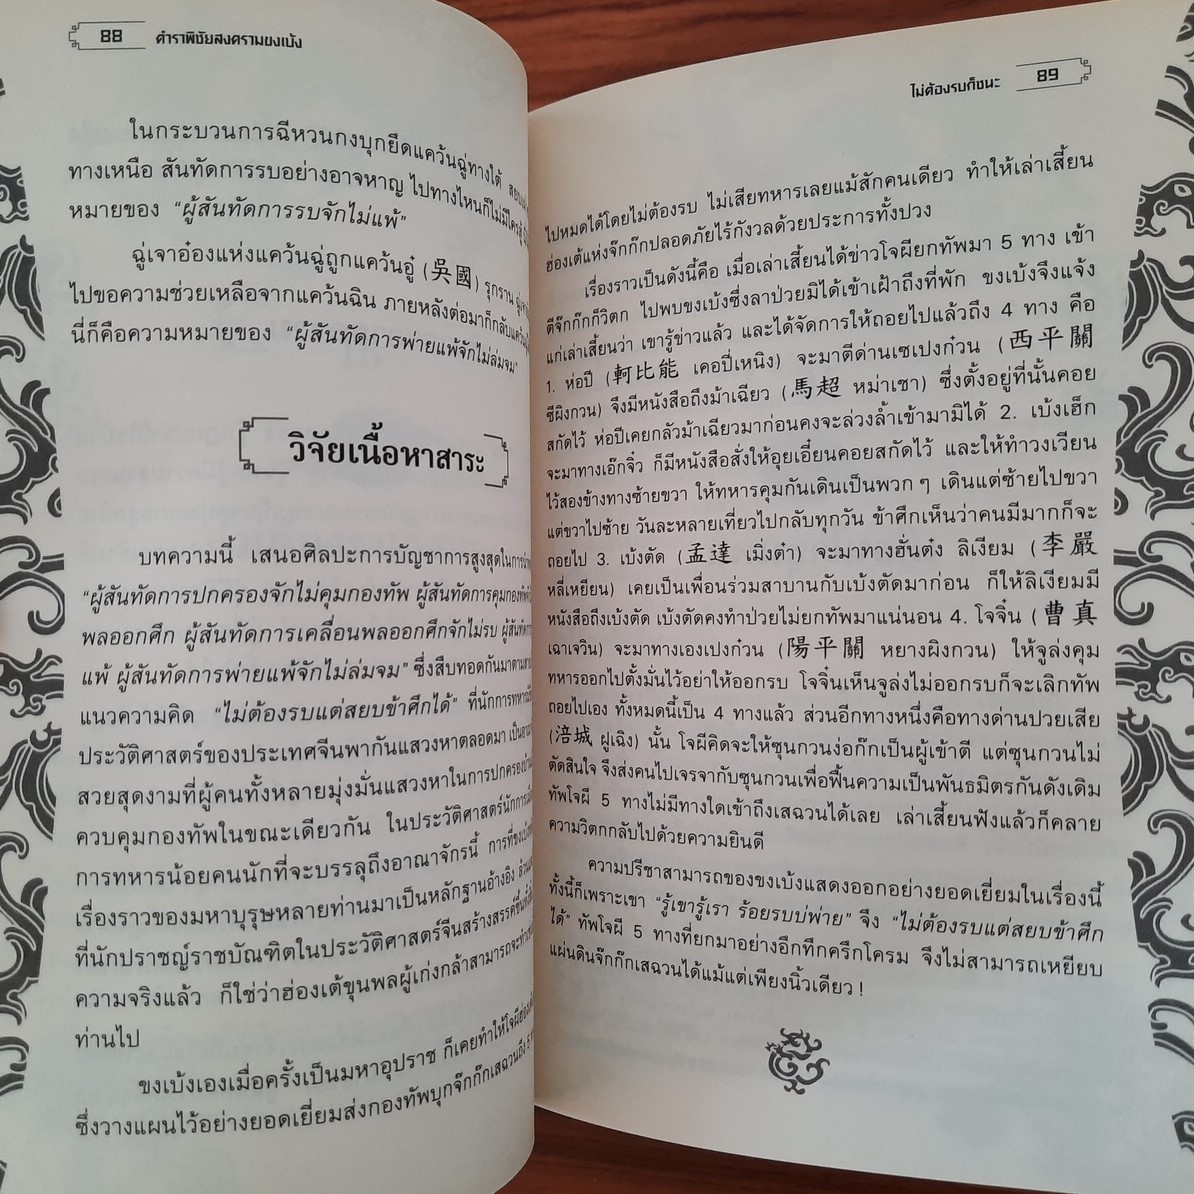 88 ตำราพิชัยสงครามขงเบ้ง
ในกระบวนการฉีหวนกงบุกยึดแคว้นฉู่ทางใต้
ทางเหนือ สันทัดการรบอย่างอาจหาญ ไปทางไหนก็ไม่มีใคร
หมายของ "ผู้สันทัดการรบจักไม่แพ้"
ฉู่เจาอ๋องแห่งแคว้นฉู่ถูกแคว้นอู๋ (吳國) รุกราน
ไปขอความช่วยเหลือจากแคว้นฉิน ภายหลังต่อมาก็กลับแคว้น
นี่ก็คือความหมายของ "ผู้สันทัดการพ่ายแพ้จักไม่ล่มจม"
วิจัยเนื้อหาสาระ
บทความนี้ เสนอศิลปะการบัญชาการสูงสุดในการ
"ผู้สันทัดการปกครองจักไม่คุมกองทัพ ผู้สันทัดการคุมกองทัพ
พลออกศึก ผู้สันทัดการเคลื่อนพลออกศึกจักไม่รบ ผู้สันทัด
แพ้ ผู้สันทัดการพ่ายแพ้จักไม่ล่มจม" ซึ่งสืบทอดกันมา
แนวความคิด "ไม่ต้องรบแต่สยบข้าศึกได้" ที่นักการทหาร
ประวัติศาสตร์ของประเทศจีนพากันแสวงหาตลอดมา
สวยสุดงามที่ผู้คนทั้งหลายมุ่งมั่นแสวงหาในการปกครอง
ควบคุมกองทัพในขณะเดียวกัน ในประวัติศาสตร์นักการ
การทหารน้อยคนนักที่จะบรรลุถึงอาณาจักรนี้ การที่ขงเบ้ง
เรื่องราวของมหาบุรุษหลายท่านมาเป็นหลักฐานอ้างอิง
ที่นักปราชญ์ราชบัณฑิตในประวัติศาสตร์จีนสร้างสรรค์ขึ้น
ความจริงแล้ว ก็ใช่ว่าฮ่องเต้ขุนพลผู้เก่งกล้าสามารถจะ
ท่านไป
ขงเบ้งเองเมื่อครั้งเป็นมหาอุปราช ก็เคยทำให้โจผี
ซึ่งวางแผนไว้อย่างยอดเยี่ยมส่งกองทัพบุกจ๊กก๊กเสฉวนถึง 5
ไม่ต้องรบก็ชนะ 89
ไปหมดได้โดยไม่ต้องรบ ไม่เสียทหารเลยแม้สักคนเดียว ทำให้เล่าเสี้ยน
ฮ่องเต้แห่งจ๊กก๊กปลอดภัยไร้กังวลด้วยประการทั้งปวง
เรื่องราวเป็นดังนี้คือ เมื่อเล่าเสี้ยนได้ข่าวโจผียกทัพมา 5 ทาง เข้า
ตีจ๊กก๊กก็วิตก ไปพบขงเบ้งซึ่งลาป่วยมิได้เข้าเฝ้าถึงที่พัก ขงเบ้งจึงแจ้ง
แก่เล่าเสี้ยนว่า เขารู้ข่าวแล้ว และได้จัดการให้ถอยไปแล้วถึง 4 ทาง คือ
1. ห่อปี (軻比能 เคอปี่เหนิง) จะมาตีด่านเซเปงก๋วน (西平關
ซีผิงกวน) จึงมีหนังสือถึงม้าเฉียว (馬超 หม่าเชา) ซึ่งตั้งอยู่ที่นั้นคอย
สกัดไว้ ห่อปีเคยกลัวม้าเฉียวมาก่อนคงจะล่วงล้ำเข้ามามิได้ 2. เบ้งเฮ็ก
จะมาทางเอ๊กจิ๋ว ก็มีหนังสือสั่งให้อุยเอี๋ยนคอยสกัดไว้ และให้ทำวงเวียน
ไว้สองข้างทางซ้ายขวา ให้ทหารคุมกันเดินเป็นพวก ๆ เดินแต่ซ้ายไปขวา
แต่ขวาไปซ้าย วันละหลายเที่ยวไปกลับทุกวัน ข้าศึกเห็นว่าคนมีมากก็จะ
ถอยไป 3. เบ้งตัด (孟達 เมิ่งต๋า) จะมาทางฮั่นต๋ง ลิเงียม (李嚴
หลี่เหยียน) เคยเป็นเพื่อนร่วมสาบานกับเบ้งตัดมาก่อน ก็ให้ลิเงียมมี
หนังสือถึงเบ้งตัด เบ้งตัดคงทำป่วยไม่ยกทัพมาแน่นอน 4. โจจิ๋น (曹真
เฉาเจวิน) จะมาทางเองเปงก๋วน (陽平關 หยางผิงกวน) ให้จูล่งคุม
ทหารออกไปตั้งมั่นไว้อย่าให้ออกรบ โจจิ๋นเห็นจูล่งไม่ออกรบก็จะเลิกทัพ
ถอยไปเอง ทั้งหมดนี้เป็น 4 ทางแล้ว ส่วนอีกทางหนึ่งคือทางด่านปวยเสีย
(涪城 ฝูเฉิง) นั้น โจผีคิดจะให้ซุนกวนง่อก๊กเป็นผู้เข้าตี แต่ซุนกวนไม่
ตัดสินใจ จึงส่งคนไปเจรจากับซุนกวนเพื่อฟื้นความเป็นพันธมิตรกันดังเดิม
ทัพโจผี 5 ทางไม่มีทางใดเข้าถึงเสฉวนได้เลย เล่าเสี้ยนฟังแล้วก็คลาย
ความวิตกกลับไปด้วยความยินดี
ความปรีชาสามารถของขงเบ้งแสดงออกอย่างยอดเยี่ยมในเรื่องนี้
ทั้งนี้ก็เพราะเขา "รู้เขารู้เรา ร้อยรบบ่พ่าย" จึง "ไม่ต้องรบแต่สยบข้าศึก
ได้" ทัพโจผี 5 ทางที่ยกมาอย่างอึกทึกครึกโครม จึงไม่สามารถเหยียบ
แผ่นดินจ๊กก๊กเสฉวนได้แม้แต่เพียงนิ้วเดียว !